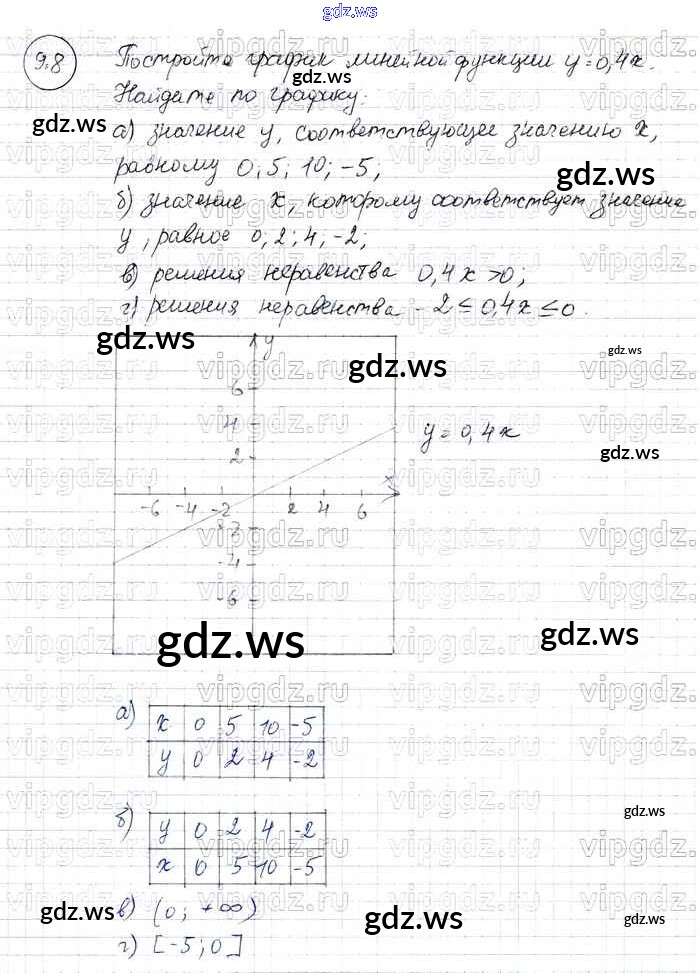 gdz.ws
9.8 Постройте график линейной функции y=0,4x.
Найдите по графику:
а) значение y, соответствующее значению x,
равному 0; 5; 10; -5;
б) значение x, которому соответствует значение
y, равное 0; 2; 4; -2;
в) решения неравенства 0,4x>0;
г) решения неравенства -2≤0,4x≤0.
y
6
4
2
y=0,4x
x
-6 -4 -2 2 4 6
-2
-4
-6
а) x 0 5 10 -5
y 0 2 4 -2
б) y 0 2 4 -2
x 0 5 10 -5
в) (0; +∞)
г) [-5; 0]
gdz.ws
gdz.ws
gdz.ws
gdz.ws
gdz.ws
gdz.ws
gdz.ws
gdz.ws
gdz.ws
gdz.ws
gdz.ws
gdz.ws
gdz.ws
vipgdz.ru